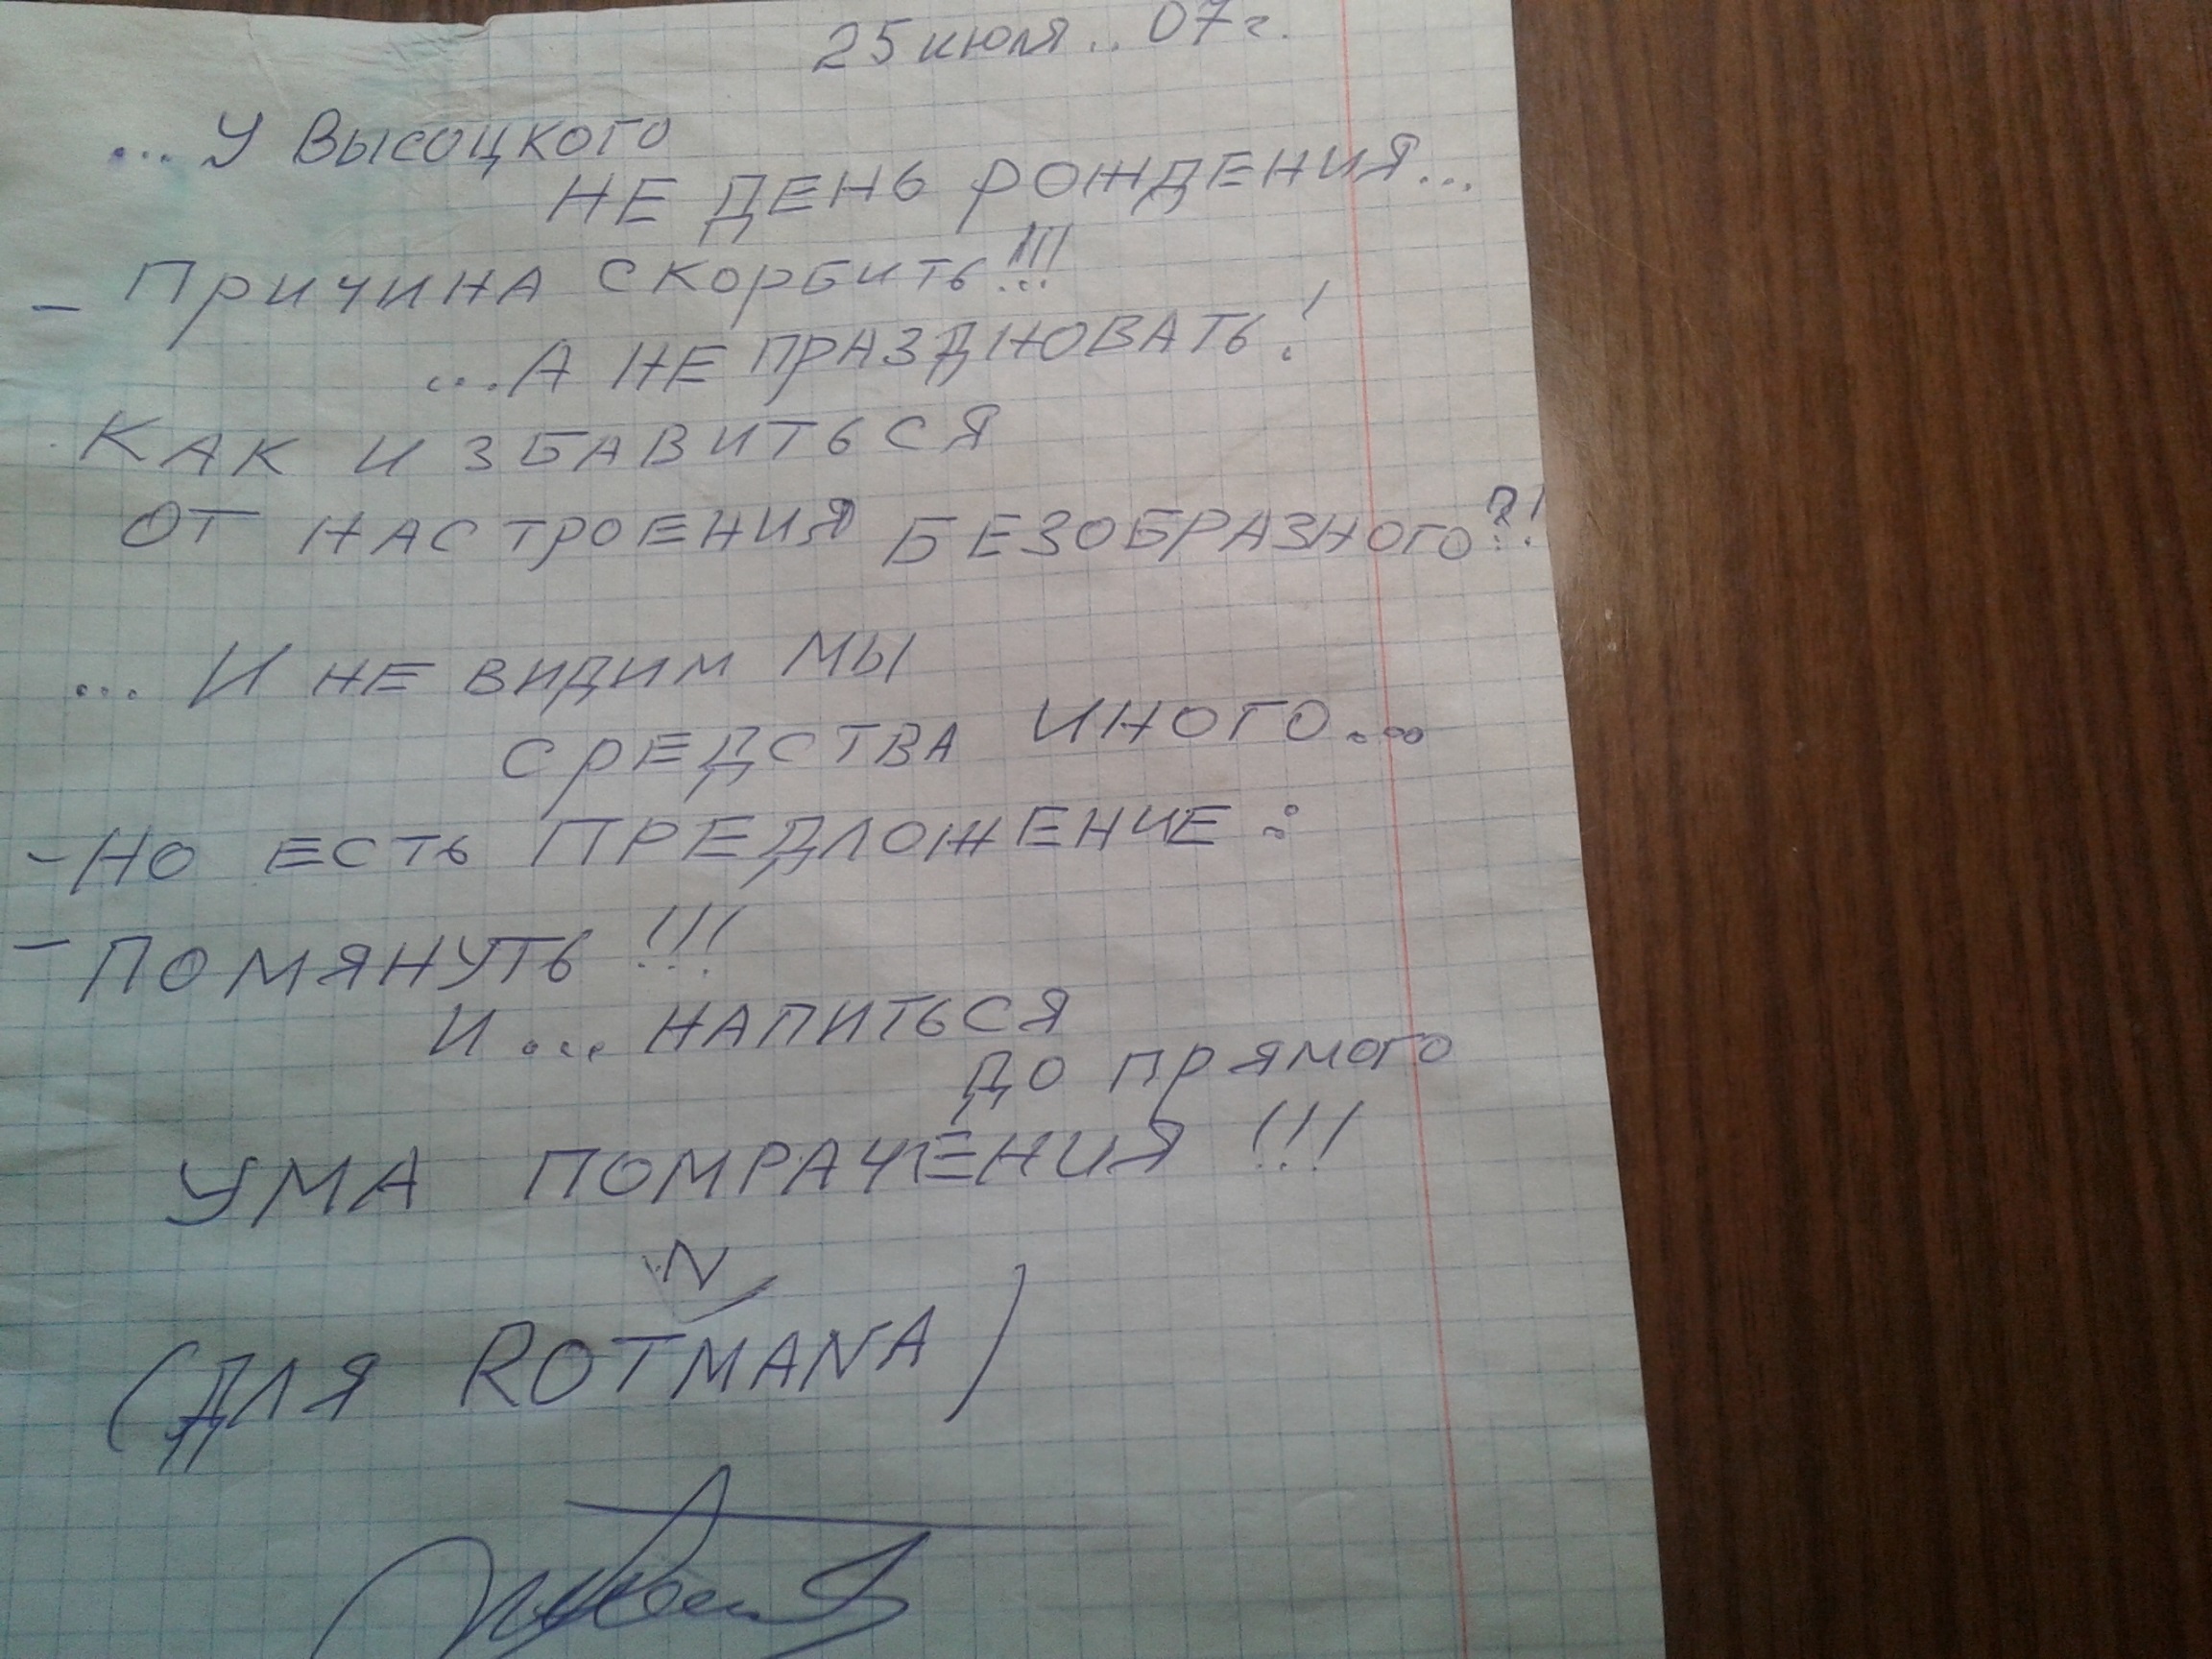 25 июля .. 07 г.
... У Высоцкого
не день рождения...
- Причина скорбить!!!
...А не праздновать!
Как избавиться
от настроения безобразного?!
... И не видим мы
средства иного...
- Но есть предложение:
- Помянуть!!!
и ... напиться
до прямого
ума помрачения!!!
N
(для ROTMANA)